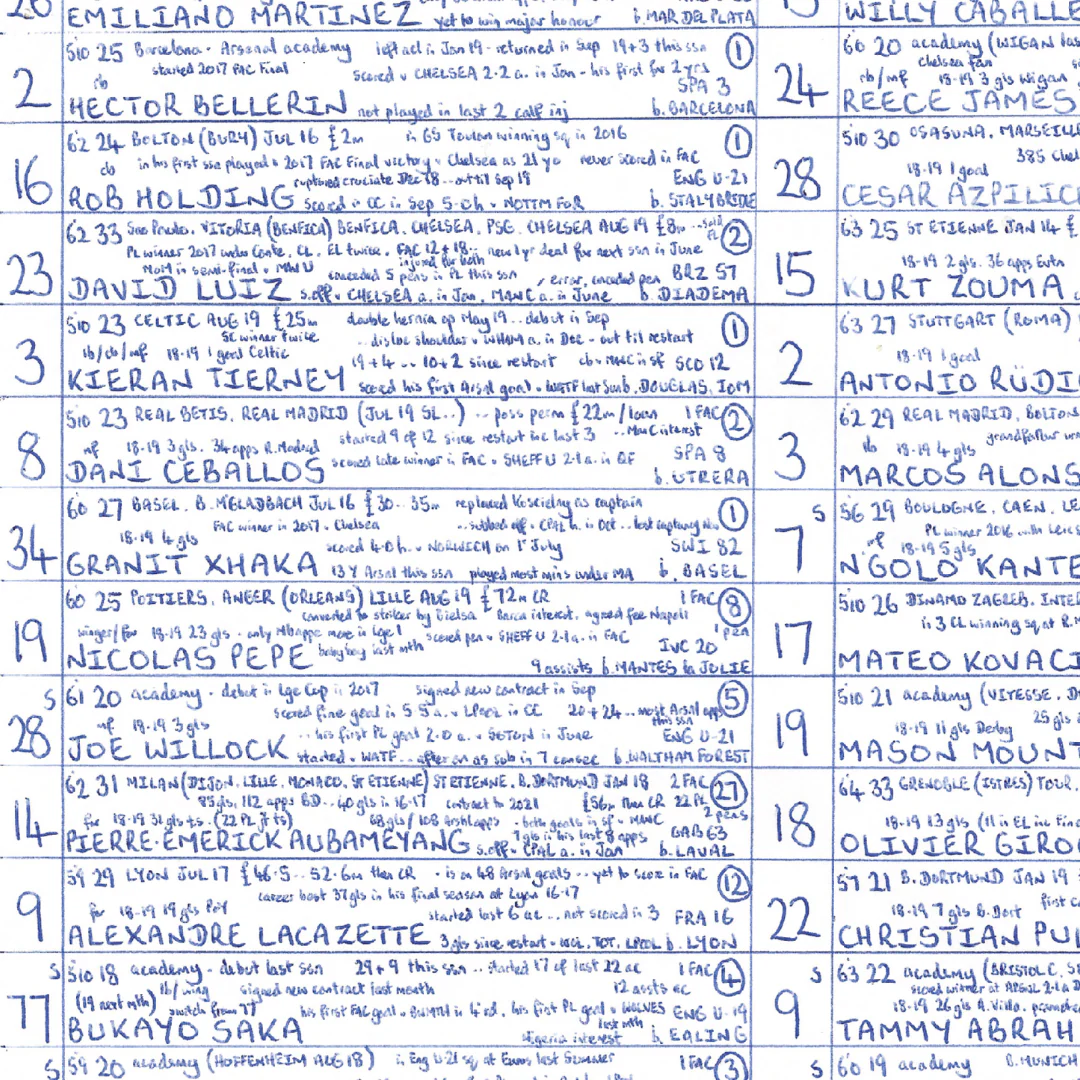 EMILIANO MARTINEZ yet to win major honour b. MAR DEL PLATA
2
510 25 Barcelona - Arsenal academy left acl in Jan 19 - returned in Sep 19+3 this ssn 1
started 2017 FAC Final scored v CHELSEA 2-2 a. in Jan - his first for 2 yrs
rb SPA 3
HECTOR BELLERIN not played in last 2 calf inj b. BARCELONA
16
62 24 BOLTON (BURY) JUL 16 £2m in GS Toulon winning sq in 2016 1
cb in his first ssn played v 2017 FAC Final victory v Chelsea as 21 yo never scored in FAC
ruptured cruciate Dec 18 -- out til Sep 19 ENG U-21
ROB HOLDING scored in CC in Sep 5-0 h v NOTTM FOR b. STALYBRIDGE
23
62 33 Sao Paulo, VITORIA (BENFICA) BENFICA, CHELSEA, PSG, CHELSEA AUG 19 £8m 2
PL winner 2017 under Conte, CL, EL twice, FAC 12+18 -- new 1 yr deal for next ssn in June
injured for both
MoM in semi-final v MAN U conceded 5 pens in PL this ssn error, conceded pen BRZ 57
DAVID LUIZ s.off v CHELSEA a. in Jan, MANC a. in June b. DIADEMA
3
510 23 CELTIC AUG 19 £25m double hernia op May 19 -- debut in Sep 1
SC winner twice -- disloc shoulder v WHAM a. in Dec - out til restart
lb/cb/mf 18-19 1 goal Celtic 19+4 -- 10+2 since restart cb v MANC in sf SCO 12
KIERAN TIERNEY scored his first Arsnl goal v WATF last Sun b. DOUGLAS, IOM
8
510 23 REAL BETIS, REAL MADRID (JUL 19 SL--) -- poss perm £22m/loan 1 FAC 2
mf 18-19 3 gls. 34 apps R. Madrid started 9 of 12 since restart inc last 3 -- Man C interest
SPA 8
DANI CEBALLOS scored late winner in FAC v SHEFF U 2-1 a. in QF b. UTRERA
34
60 27 BASEL, B. MGLADBACH JUL 16 £30-35m replaced Koscielny as captain 1
FAC winner in 2017 v Chelsea -- subbed off v CPAL h. in Oct -- lost captaincy Nov
18-19 4 gls scored 4-0 h. v NORWICH on 1st July SWI 82
GRANIT XHAKA 13 Y Arsnl this ssn played most mins under MA b. BASEL
19
60 25 POITIERS, ANGER (ORLEANS) LILLE AUG 19 £72m CR 1 FAC 8
converted to striker by Bielsa Barca interest, agreed fee Napoli 1 pen
winger/for 18-19 23 gls - only Mbappe more in Lge 1 scored pen v SHEFF U 2-1 a. in FAC
baby boy last mth IVC 20
NICOLAS PEPE 9 assists b. MANTES la JOLIE
S 28
61 20 academy - debut in Lge Cup in 2017 signed new contract in Sep 5
scored fine goal in 5-5 a. v LPOOL in CC 20+24 -- most Arsnl apps this ssn
mf 18-19 3 gls -- his first PL goal 2-0 a. v SOTON in June ENG U-21
JOE WILLOCK started v WATF -- after on as sub in 7 consec b. WALTHAM FOREST
14
62 31 MILAN (DIJON, LILLE, MONACO, ST ETIENNE) ST ETIENNE, B. DORTMUND JAN 18 2 FAC 27
85 gls, 112 apps BD -- 40 gls in 16-17 contract to 2021 £56m then CR 22 PL
2 pens
for 18-19 31 gls ts. (22 PL jt ts) 68 gls/108 Arsnl apps - both goals in sf v MANC
7 gls in his last 8 apps GAB 63
PIERRE-EMERICK AUBAMEYANG s.off v CPAL a. in Jan b. LAVAL
9
59 29 LYON JUL 17 £46.5 -- 52.6m then CR - is on 48 Arsnl goals -- yet to score in FAC 12
career best 37 gls in his final season at Lyon 16-17
for 18-19 19 gls PoY started last 6 ac -- not scored in 3 FRA 16
ALEXANDRE LACAZETTE 3 gls since restart - WOL, TOT, LPOOL b. LYON
S 77
510 18 academy - debut last ssn 29+9 this ssn -- started 17 of last 22 ac 1 FAC 4
(19 next mth) lb/wing signed new contract last month 12 assts ac
switch from 77 his first FAC goal v BMTH in 4 rd, his first PL goal v WOLVES last mth ENG U-19
BUKAYO SAKA Nigeria interest b. EALING
S 59 20 academy (HOFFENHEIM AUG 18) in Eng U-21 sq at Euros last Summer 1 FAC 3
WILLY CABALLE
24
60 20 academy (WIGAN las
chelsea fan
rb/mf 18-19 3 gls Wigan
REECE JAMES
28
510 30 OSASUNA, MARSEILLE
385 Chel
18-19 1 goal
CESAR AZPILIC
15
63 25 ST ETIENNE JAN 14 £
18-19 2 gls. 36 apps Evtn
KURT ZOUMA
2
63 27 STUTTGART (ROMA)
18-19 1 goal
ANTONIO RÜDI
3
62 29 REAL MADRID, BOLTON
lb 18-19 4 gls grandfather
MARCOS ALONS
S 7
56 29 BOULOGNE, CAEN, LE
PL winner 2016 with Leics
mf 18-19 5 gls
NGOLO KANTE
17
510 26 DINAMO ZAGREB, INTE
in 3 CL winning sq at R. M
MATEO KOVACI
19
510 21 academy (VITESSE, D
18-19 11 gls Derby 25 gls
MASON MOUNT
18
64 33 GRENOBLE (ISTRES) TOUR,
18-19 13 gls (11 in EL inc Fina
OLIVIER GIROU
22
57 21 B. DORTMUND JAN 19
first
18-19 7 gls B. Dort
CHRISTIAN PUL
S 9
63 22 academy (BRISTOL C, S
scored winner at ARSNL 2-1 a D
18-19 26 gls A. Villa, promoted
TAMMY ABRAH
S 60 19 academy B. MUNICH